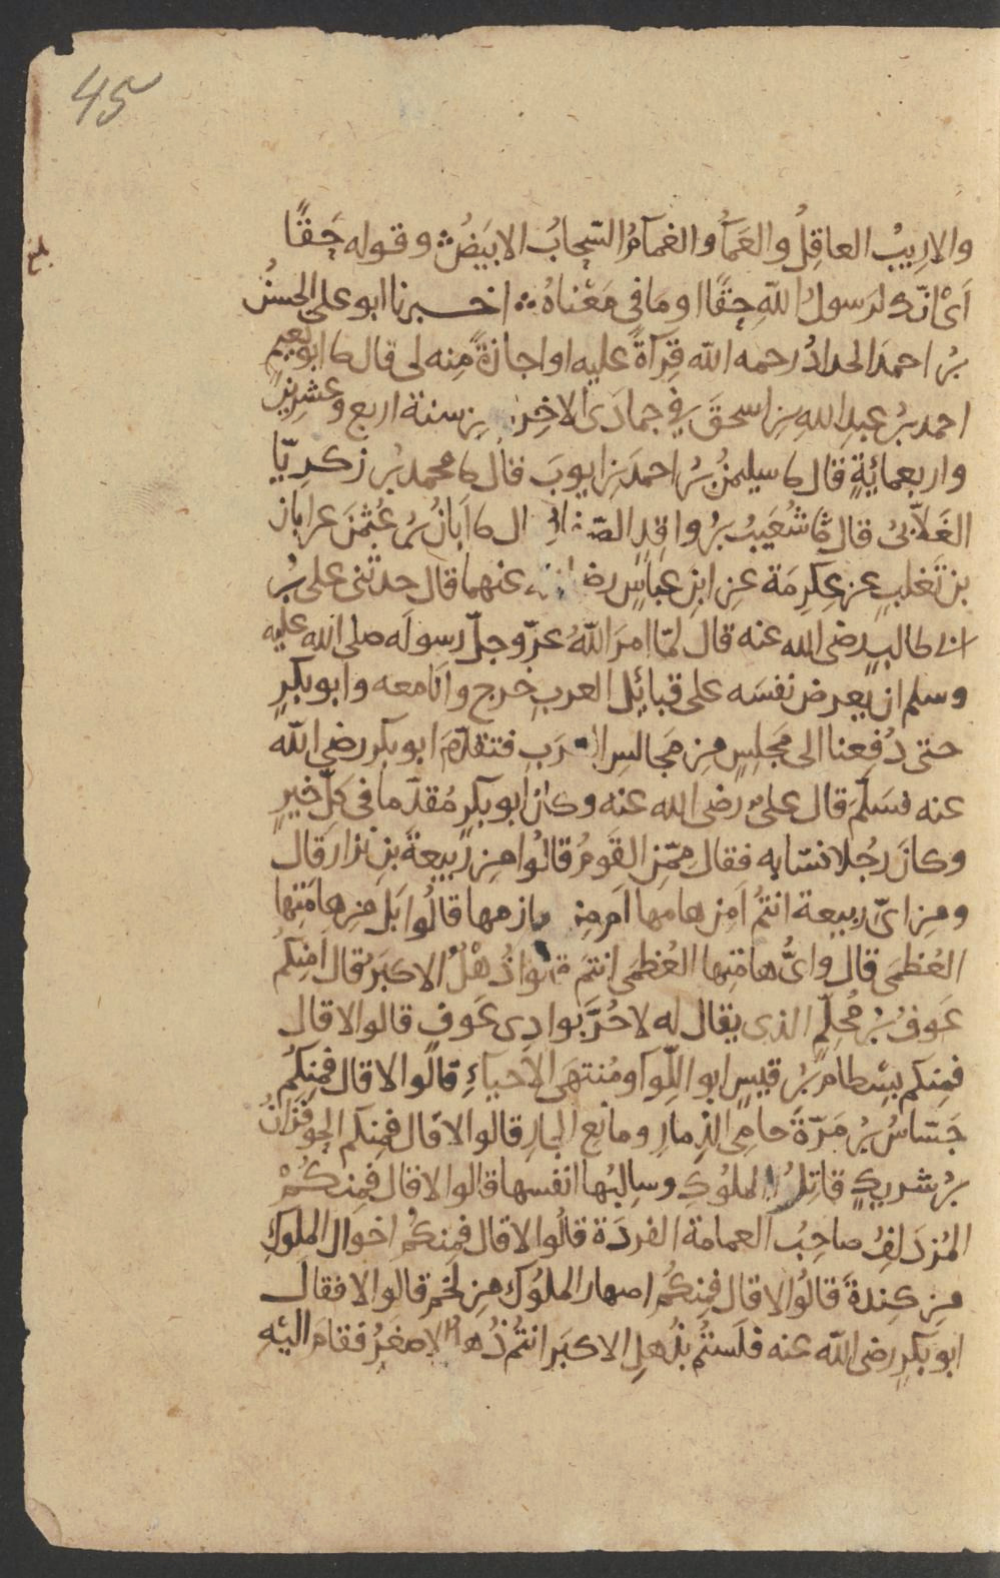 45
والاريبُ العاقِلُ والعَمَآُ والغمآمُ السّحابُ الابيَضُ وقوله حَِقًّا
اَىْ انّك لرَسولُ اللّهِ حِقًّا او مَا فى مَعْناهُ اخــبرنا ابو على الحسنُ
بنُ احمدَ الحدادُ رحمه الله قِرآةً عليه او اجازةً مِنه لى قال نا ابو نعيم
احمد بنُ عبدِ اللهِ بنِ اسحقَ فى جمادَى الاخِر مِن سنة اربع وعشرِينَ
واربعمائةٍ قال نا سليمنُ بنُ احمدَ بنِ ايوبَ قال نا محمد بنُ زكريّا
الغَلاَّبىُ قال نا شُعَيبُ بنُ واقدٍ ال نا اَبانُ بنُ عُثمنَ عن ابان
بن تَغلبٍ عن عِكرِمَة عنِ ابنِ عباسٍ رض عنهما قال حدثنى على بنُ
ابى طالبٍ رضى الله عنه قال لمّا امرَ اللّهُ عزّ وجلّ رسولَه صلى الله عليه
وسلم ان يعرِض نفسَه على قبائِل العربِ خرج وانا معه وابو بكرٍ
حتى دُفِعنا الى مَجلِسٍ مِن مَجالسِ العرَبِ فتقدّمَ ابو بكر رضى الله
عنه فسَلّمَ قال علىٌ رضى الله عنه وكان ابو بكرٍ مُقدّما فى كلِّ خيرٍ
وكانَ رجُلا نسّابه فقال ممّنِ القَومُ قالُوا مِن رَبيعةَ بنِ نزار قال
ومِن اىّ ربيعة انتمُ اَمِن هامها اَم مِن لهازمها قالُوا بَل مِن هامَتها
العُظمَى قال واىُّ هامَتِها العُظمَى انتمَ قالوا ذُهْلُ الاكبَر قال اَمِنكُم
عَوفُ بنُ مُحلّمٍ الذى يقال له لا حُرَّ بوادِى عَوفٍ قالوا لا قال
فمِنكم بِسْطامُ بنُ قيسٍ ابو اللِّوآ ومُنتهَى الاَحياءِ قالوا لا قال فمِنكُم
جَسّاسُ بنُ مَرّةَ حامِى الذِمارِ ومانع الجارِ قالوا لا قال فمِنكم الحوفَزانُ
بنُ شريكٍ قاتِلُ الملُوكِ وسالِبُها انفسها قالوا لا قال فمِنكُمْ
المُزدَلِفُ صاحِبُ العمامة الفردَة قالُوا لا قال فمِنكُم اخوال الملُوكِ
مِن كِندةَ قالُوا لا قال فمِنكُم اصهار الملُوك مِن لَخمٍ قالوا لا فقال
ابو بكرٍ رضى الله عنه فلَستُم بذُهلِ الاكبَر انتُم ذُهل الاصغَرُ فقامَ اليْهِ